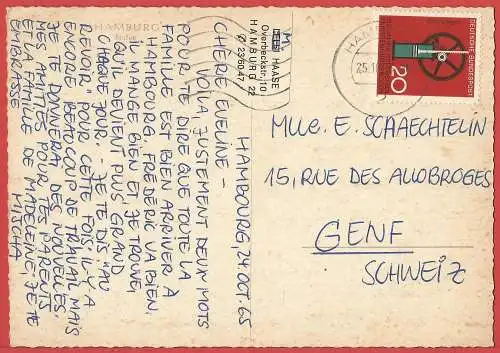 HAMBURG
M. HAASE
Overbeckstr. 10
HAMBURG 22
✆ 23 60 47
HAMBURG, 24. OCT. 65
CHÈRE EVELINE –
VOILÀ JUSTEMENT DEUX MOTS
POUR TE DIRE QUE TOUTE LA
FAMILLE EST BIEN ARRIVER À
HAMBOURG. FRÉDÉRIC VA BIEN,
IL MANGE BIEN ET JE TROUVE,
QU'IL DEVIENT PLUS GRAND
CHAQUE JOUR. – JE TE DIS "AU
REVOIR" POUR CETTE FOIS, IL Y A
ENCORE BEAUCOUP DE TRAVAIL MAIS
JE TE DONNERAI DES NOUVELLES.
MES AMITIÉS POUR TES PARENTS
ET LA FAMILLE DE MADELEINE, JE TE
EMBRASSE
MISCHA
DEUTSCHE BUNDESPOST
20
HAM
25.10
Mlle. E. SCHAECHTELIN
15, RUE DES ALLOBROGES
GENF
SCHWEIZ